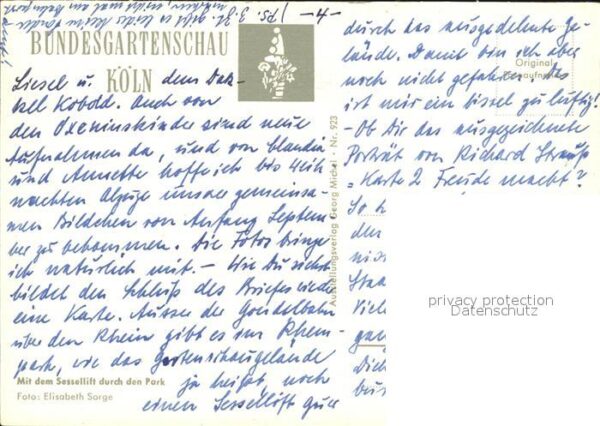 -4-
BUNDESGARTENSCHAU
KÖLN
Liesel u. dem Dak-
kel Kobold. Auch von
den Oxeninskinder sind neue
Aufnahmen da, und von Claudia
und Annette hoffe ich bis Weih
nachten Abzüge unsrer gemeinsa-
men Bildchen von Anfang Septem
ber zu bekommen. Die Fotos bringe
ich natürlich mit. - Wie Du siehst
bildet den Schluß des Briefes wieder
eine Karte. Ausser der Gondelbahn
über den Rhein gibt es im Rhein-
park, wie das Gartenschaugelände
Mit dem Sessellift durch den Park
ja heißt, noch
Foto: Elisabeth Sorge
einen Sessellift quer
Ausstellungsverlag Georg Michel - Nr. 923
durch das ausgedehnte Ge-
lände. Damit bin ich aber
Original
noch nicht gefahren, das
ist mir ein bissel zu luftig!
- Ob Dir das ausgezeichnete
Porträt von Richard Strauß
= Karte 2 Freude macht?
So h
den
nis
Staa
Viel
gan
Dich
bis
privacy protection
Datenschutz